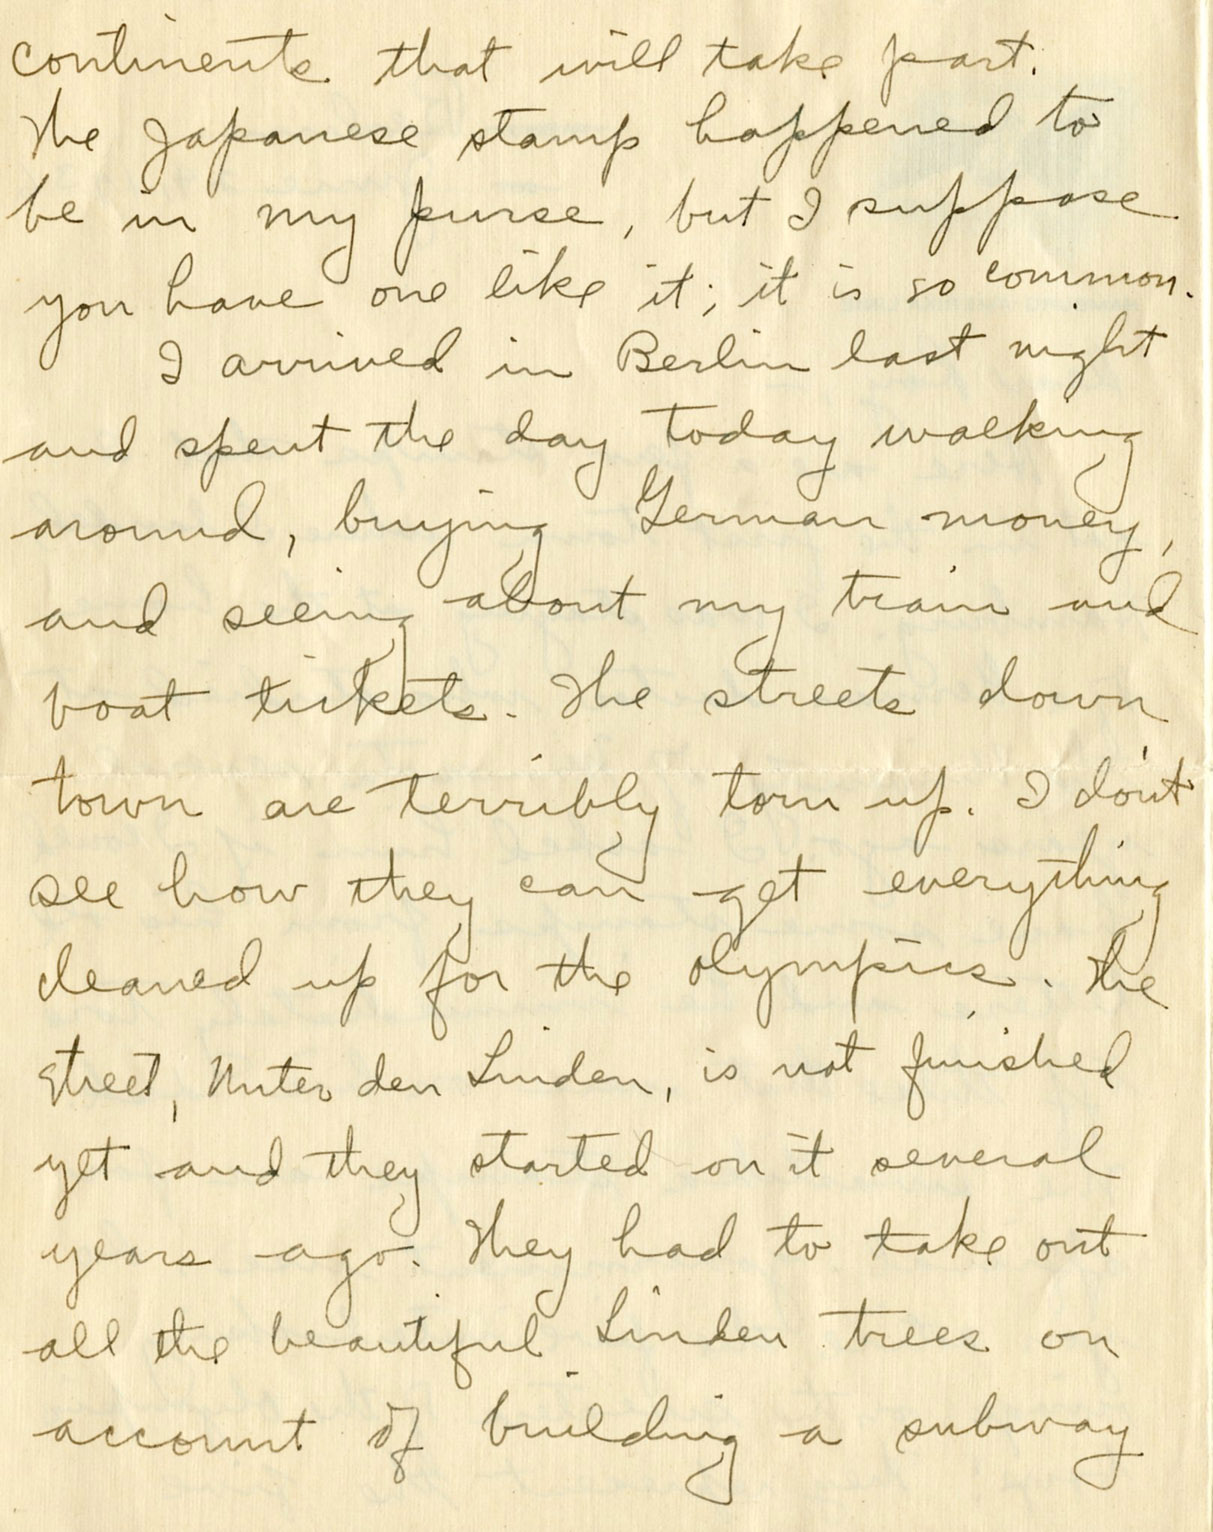 continents that will take part.
The Japanese stamp happened to
be in my purse, but I suppose
you have one like it; it is so common.
I arrived in Berlin last night
and spent the day today walking
around, buying German money,
and seeing about my train and
boat tickets. The streets down
town are terribly torn up. I don't
see how they can get everything
cleaned up for the olympics. The
street, Unter den Linden, is not finished
yet and they started on it several
years ago. They had to take out
all the beautiful Linden trees on
account of building a subway